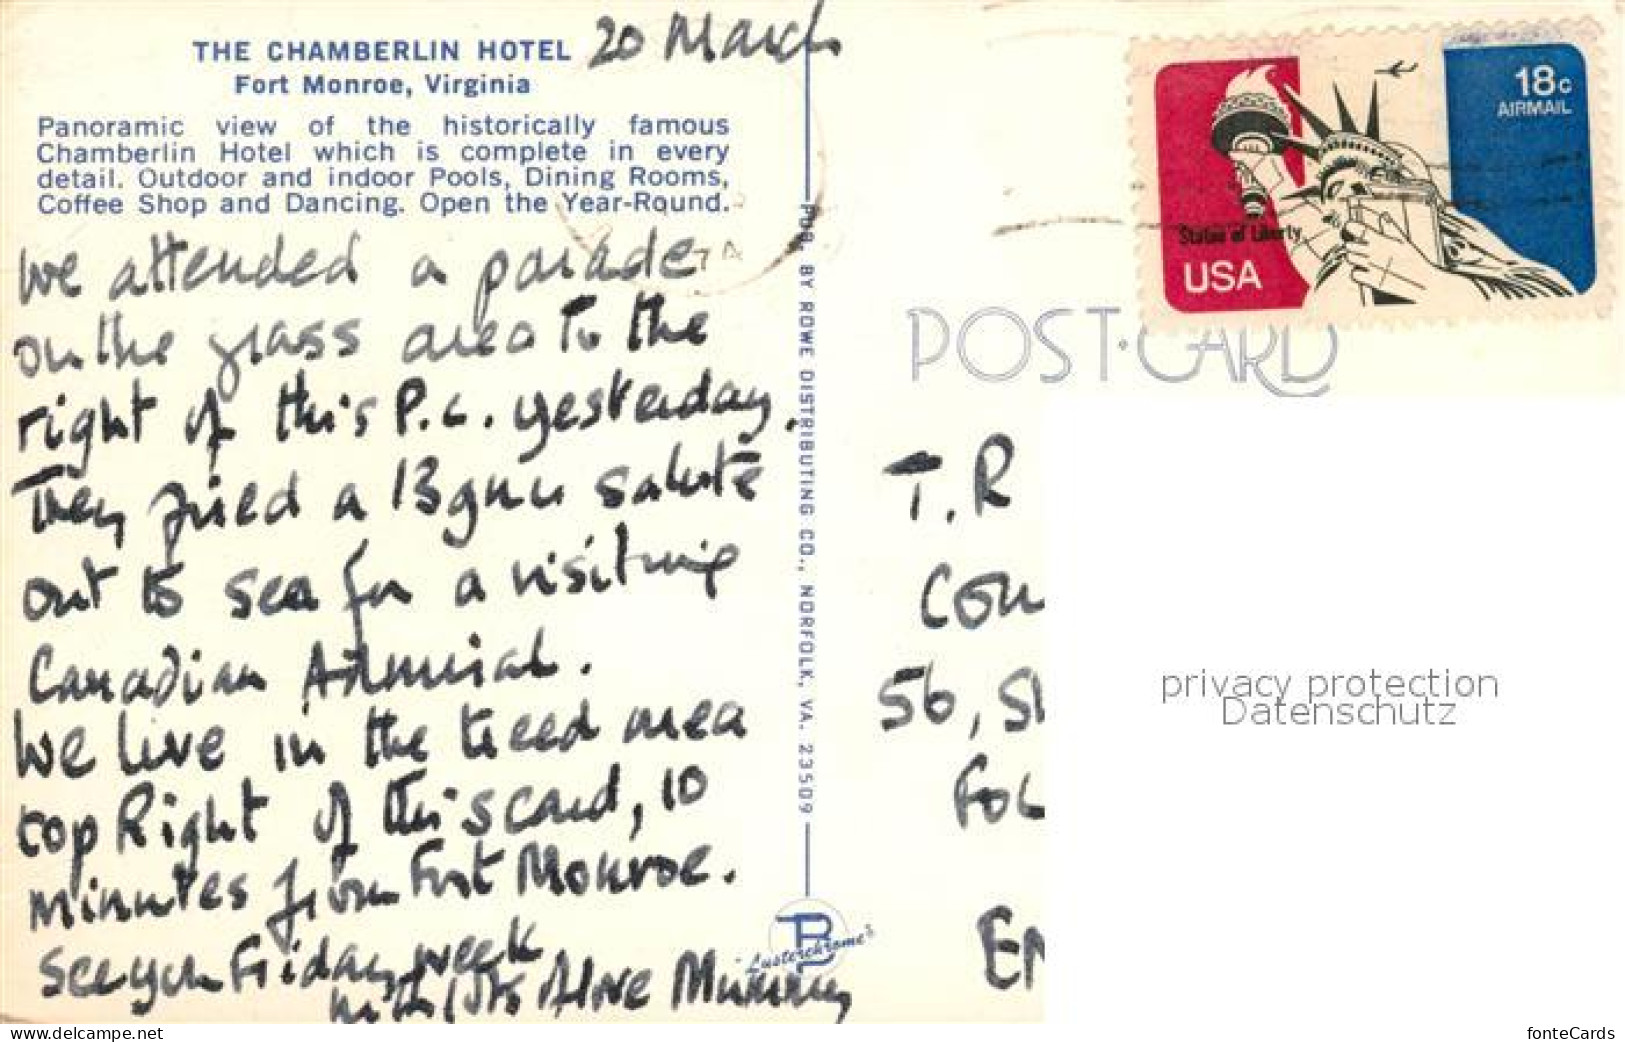 THE CHAMBERLIN HOTEL
Fort Monroe, Virginia
20 March
Panoramic view of the historically famous
Chamberlin Hotel which is complete in every
detail. Outdoor and indoor Pools, Dining Rooms,
Coffee Shop and Dancing. Open the Year-Round.
We attended a parade
on the grass area to the
right of this P.c. yesterday.
They fired a 13 gun salute
out to sea for a visiting
Canadian Admiral.
We live in the treed area
top Right of this card, 10
minutes from Fort Monroe.
See you Friday week
Love Mummy
PUB. BY ROWE DISTRIBUTING CO., NORFOLK, VA. 23509
"Lusterchrome"
18c
AIRMAIL
Statue of Liberty
USA
POST CARD
T.R
COU
56, SH
FOL
EN
privacy protection
Datenschutz
www.delcampe.net
fonteCards